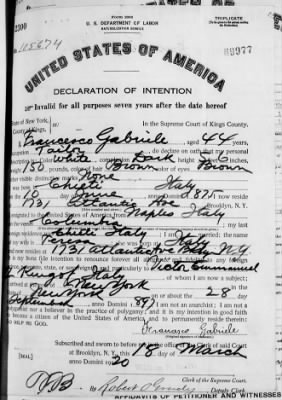 Form 2203
TRIPLICATE
U. S. DEPARTMENT OF LABOR
NATURALIZATION SERVICE
115674
UNITED STATES OF AMERICA
DECLARATION OF INTENTION
Invalid for all purposes seven years after the date hereof
State of New York,
County of Kings,
In the Supreme Court of Kings County,
Francesco Gabriele, aged 44 years,
occupation Tailor, do declare on oath that my personal
description is: Color White, complexion Dark, height 5 feet inches,
weight 150 pounds, color of hair Brown, color of eyes Brown
other visible distinctive marks None
Chieti Italy
on the 10 day of June, anno Domini 1875; I now reside
at 1731 Atlantic Ave Brooklyn, N. Y.
I emigrated to the United States of America from Naples Italy
on the vessel Colombo; my last
foreign residence was Chieti Italy; I am married; the name
Italy
1731 Atlantic Ave Bklyn N.Y.
It is my bona fide intention to renounce forever all allegiance and fidelity to any foreign
prince, potentate, state, or sovereignty, and particularly to Victor Emmanuel
King of Italy, of whom I am now a subject;
New York
New York on or about the 28 day
of September, anno Domini 1897; I am not an anarchist; I am not a
polygamist nor a believer in the practice of polygamy; and it is my intention in good faith
to become a citizen of the United States of America and to permanently reside therein:
SO HELP ME GOD.
Francesco Gabriele
Subscribed and sworn to before me in the office of the Clerk of said Court
at Brooklyn, N. Y., this 18 day of March
[SEAL] anno Domini 1920
Clerk of the Supreme Court.
By Deputy Clerk.
AFFIDAVITS OF PETITIONER AND WITNESSES